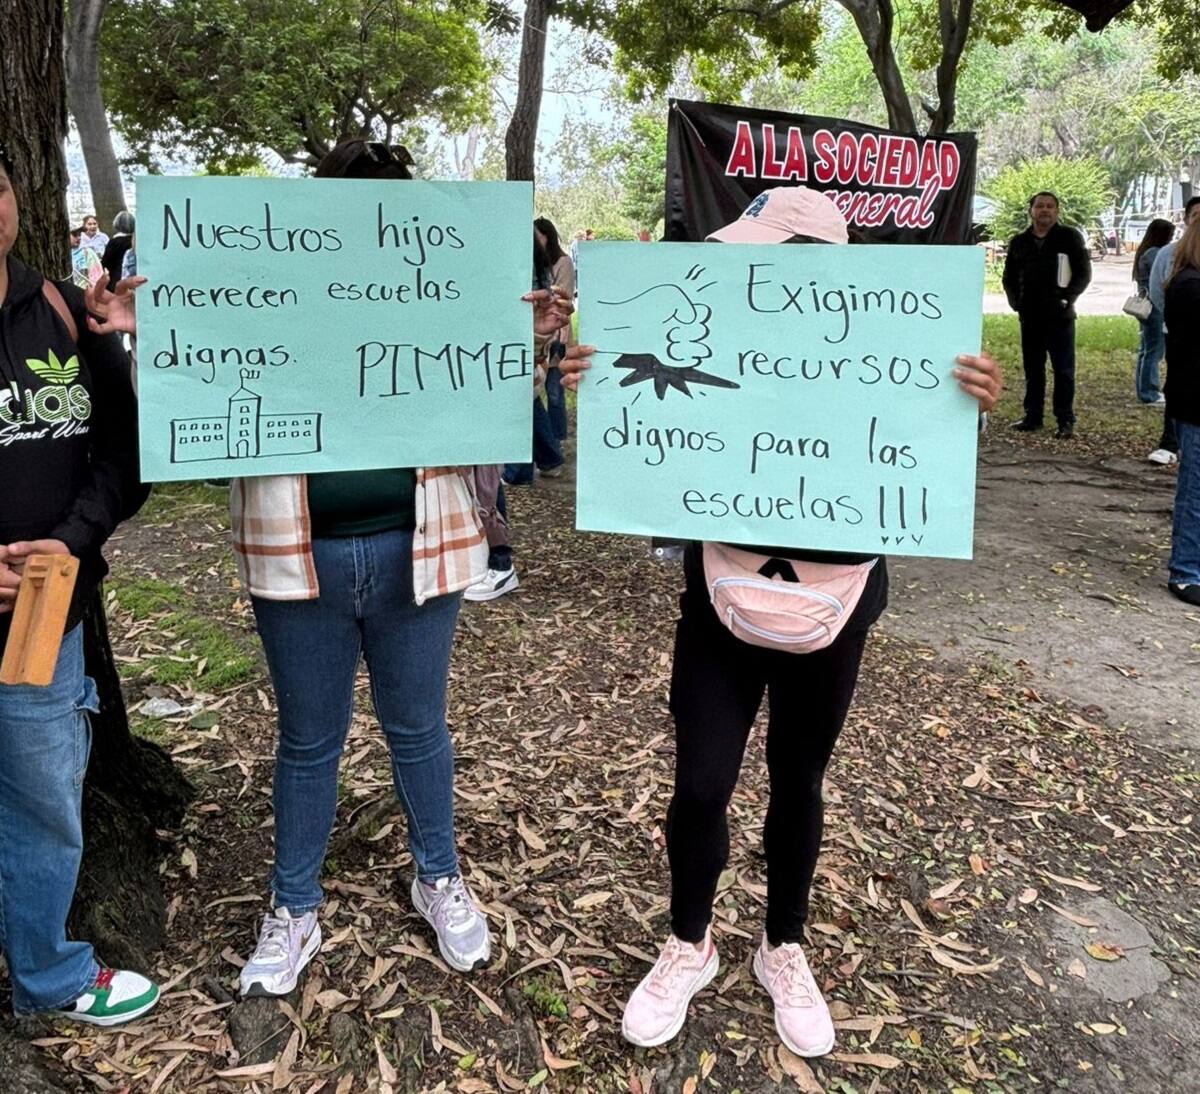 Nuestros hijos
merecen escuelas
dignas. PIMMEE
A LA SOCIEDAD
general
Exigimos
recursos
dignos para las
escuelas!!!
Sport Wear